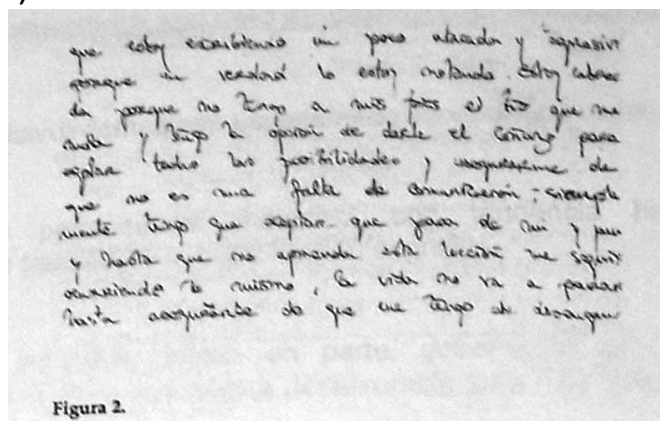 que estoy escribiendo un poco alocada y agresiva
porque en verdad lo estoy notando. Estoy cabrea
da porque no tengo a mis pies el tío que me
gusta y tengo la opción de darle el coñazo para
agotar todas las posibilidades y asegurarme de
que no es una falta de comunicación - simple
mente tengo que aceptar que pasa de mi y
y hasta que no aprenda esta lección me seguirá
ocurriendo lo mismo, la vida no va a parar
hasta asegurarse de que me tengo que
Figura 2.